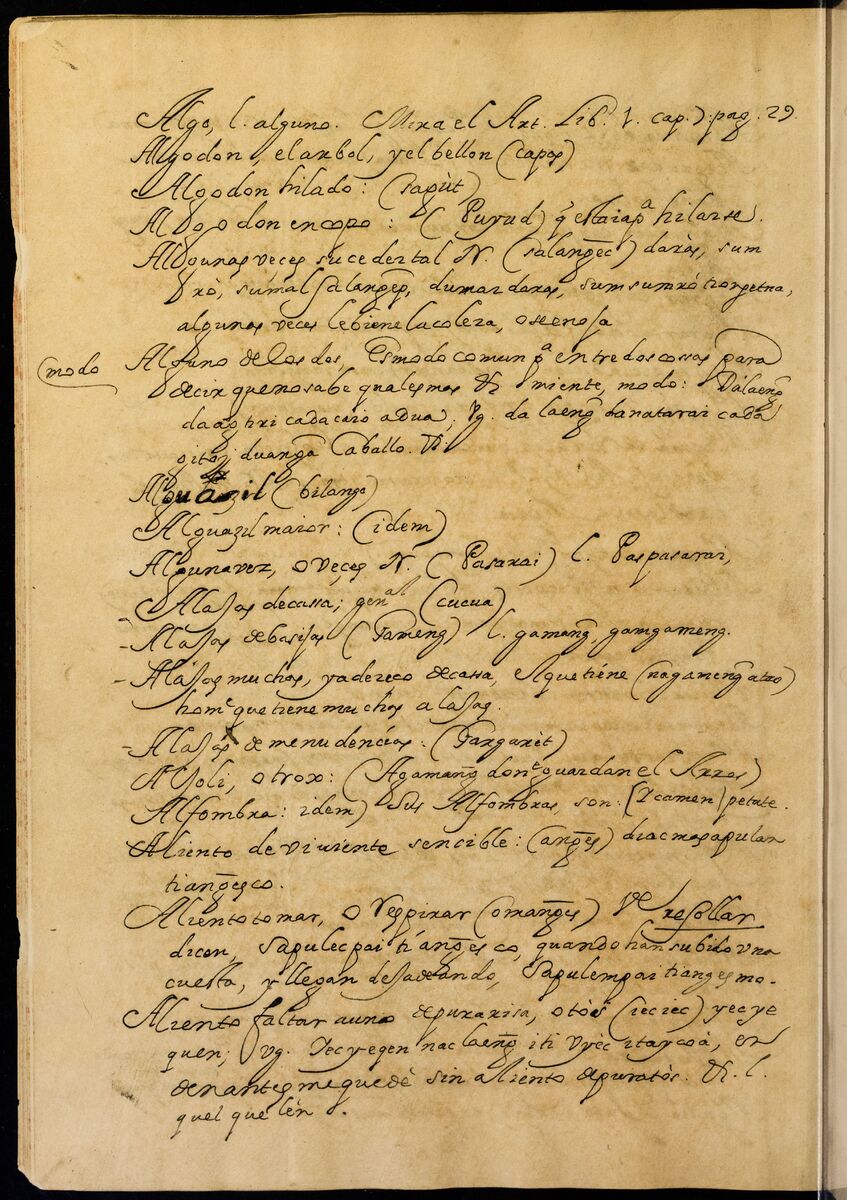 Algo, l. alguno. Mira el Art. Lib.º 1. cap. 7. pag. 29
Algodon, el arbol, y el bellon (capas)
Algodon hilado: (sagùt)
Algodon en copo: (Puyud) q̃ esta ia p.ª hilarse.
Algunas veces suceder tal N. (salangẽc) daràs, sum
rò, sumal salangeg, dumar daras, sumsumrò
algunas veces le biene la colera, o se enoja
modo
Alguno de los dos, Es modo comun p.ª entre dos cossas para
decir que no sabe qual es mas miente, modo: Dalaeng̃
da ag tiri cada caio a dua, Vg. da laeng̃ da natarai cada
gitoi duanga Caballo.
Alguazil (bilango)
Alguazil maior: (idem)
Alguna vez, o veces N. (Pasarai) l. Paspasarai,
Alajas de cassa; gen.al (cucua)
- Alajas de basijas (Gameng) l. gamang̃, gamgameng.
- Alájas muchas, y adereço de cassa, el que tiéne (nagameng̃ a tao)
hom.e que tiene muchas alajas.
- Alajás de menudencias: (Gargarèt)
Aljoli, o trox: (Agamang̃ don.e guardan el Arros)
Alfombra: idem) Sus Alfombras, son: (Icamen) petate.
Aliento de viviente sencible: (ang̃es) diac mapapulan
ti ang̃es co.
Aliento tomar, o respirar (omang̃es) De resollar
dicen, Sapulec pai ti ang̃es co, quando han subido vna
cuesta, y llegan desadeando, Sapulem pai ti anges mo.
Aliento faltar a uno de pura risa, o tos (iec iec) yec ye
quen; vg. Iecyegen nac laeng̃ iti vyèc itay coà, en
denantes me quedè sin aliento de pura tòs. l.
quel que lén.